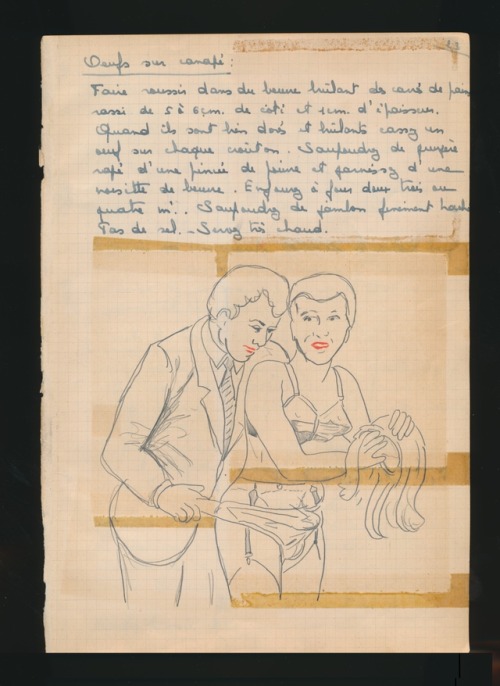 Oeufs sur canapé :
Faire roussir dans du beurre brûlant des carré de pain
rassi de 5 à 6 cm. de côté et 1 cm. d'épaisseur.
Quand ils sont bien dorés et brûlants cassez un
oeuf sur chaque croûton. Saupoudrez de gruyère
rapé d'une pincée de poivre et garnissez d'une
noisette de beurre. Enfournez à four doux trois ou
quatre m'.. Saupoudrez de jambon finement haché
Pas de sel. - Servez très chaud.